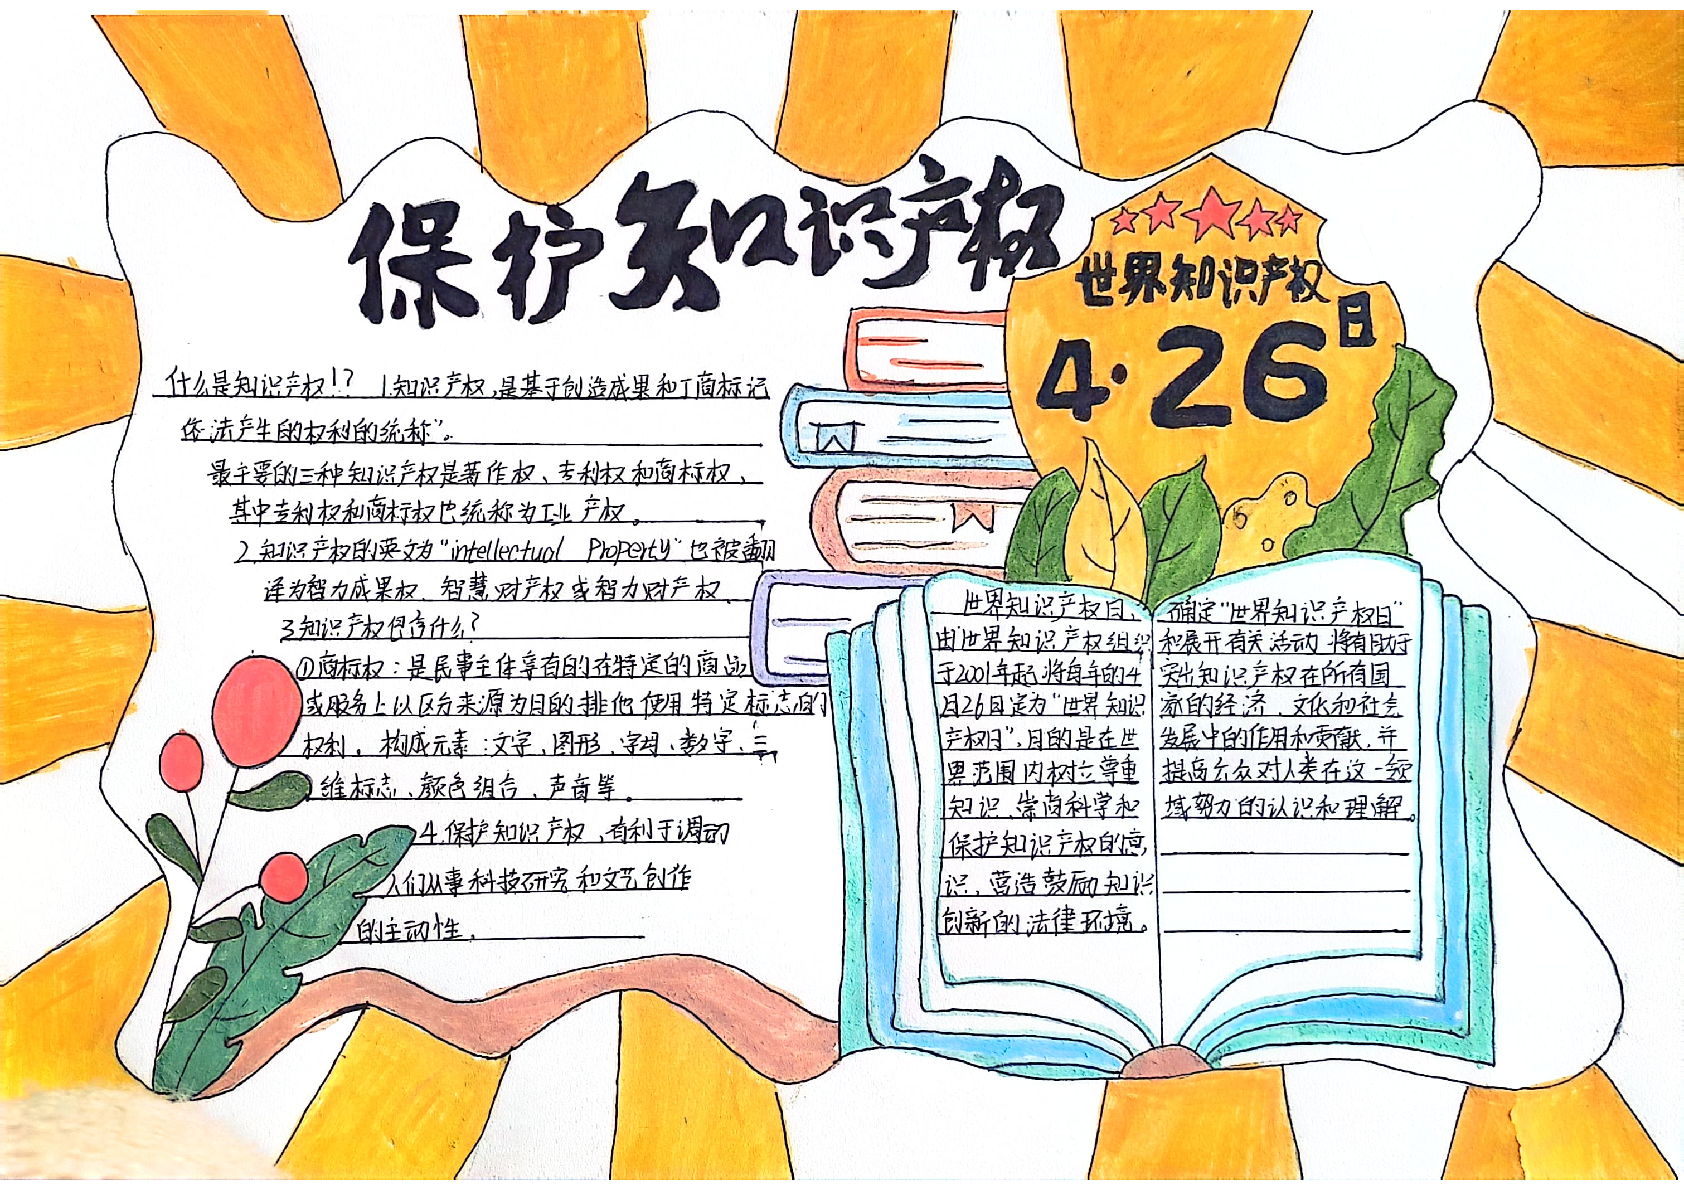 保护知识产权
世界知识产权日
4·26
什么是知识产权!? 1.知识产权,是基于创造成果和工商标记
依法产生的权利的统称”。
最主要的三种知识产权是著作权、专利权和商标权、
其中专利权和商标权也统称为工业产权。
2.知识产权的英文为“intellectual Property”也被翻
译为智力成果权、智慧财产权或智力财产权、
3知识产权包含什么?
①商标权:是民事主体享有的在特定的商品
或服务上以区分来源为目的排他使用特定标志的
权利。构成元素:文字、图形、字母、数字、三
维标志、颜色组合、声音等。
4.保护知识产权、有利于调动
人们从事科技研究和文艺创作
的主动性.
世界知识产权日、
由“世界知识产权组织
于2001年起将每年的4
月26日定为“世界知识
产权日”,目的是在世
界范围内树立尊重
知识、崇尚科学和
保护知识产权的意
识、营造鼓励知识
创新的法律环境。
确定“世界知识产权日”
和展开有关活动 将有助于
突出知识产权在所有国
家的经济、文化和社会
发展中的作用和贡献,并
提高公众对人类在这一领
域努力的认识和理解。